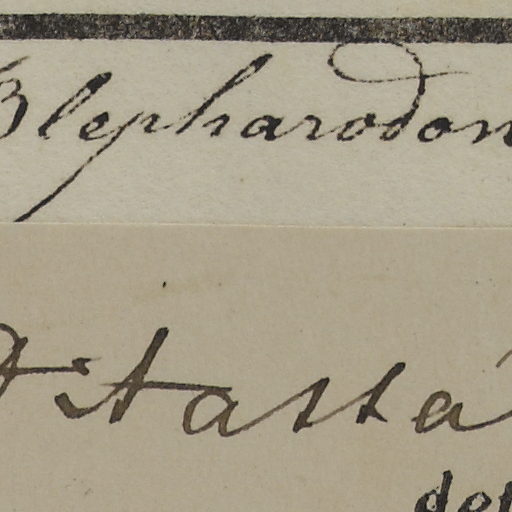 Blepharodon
Ditassa
det